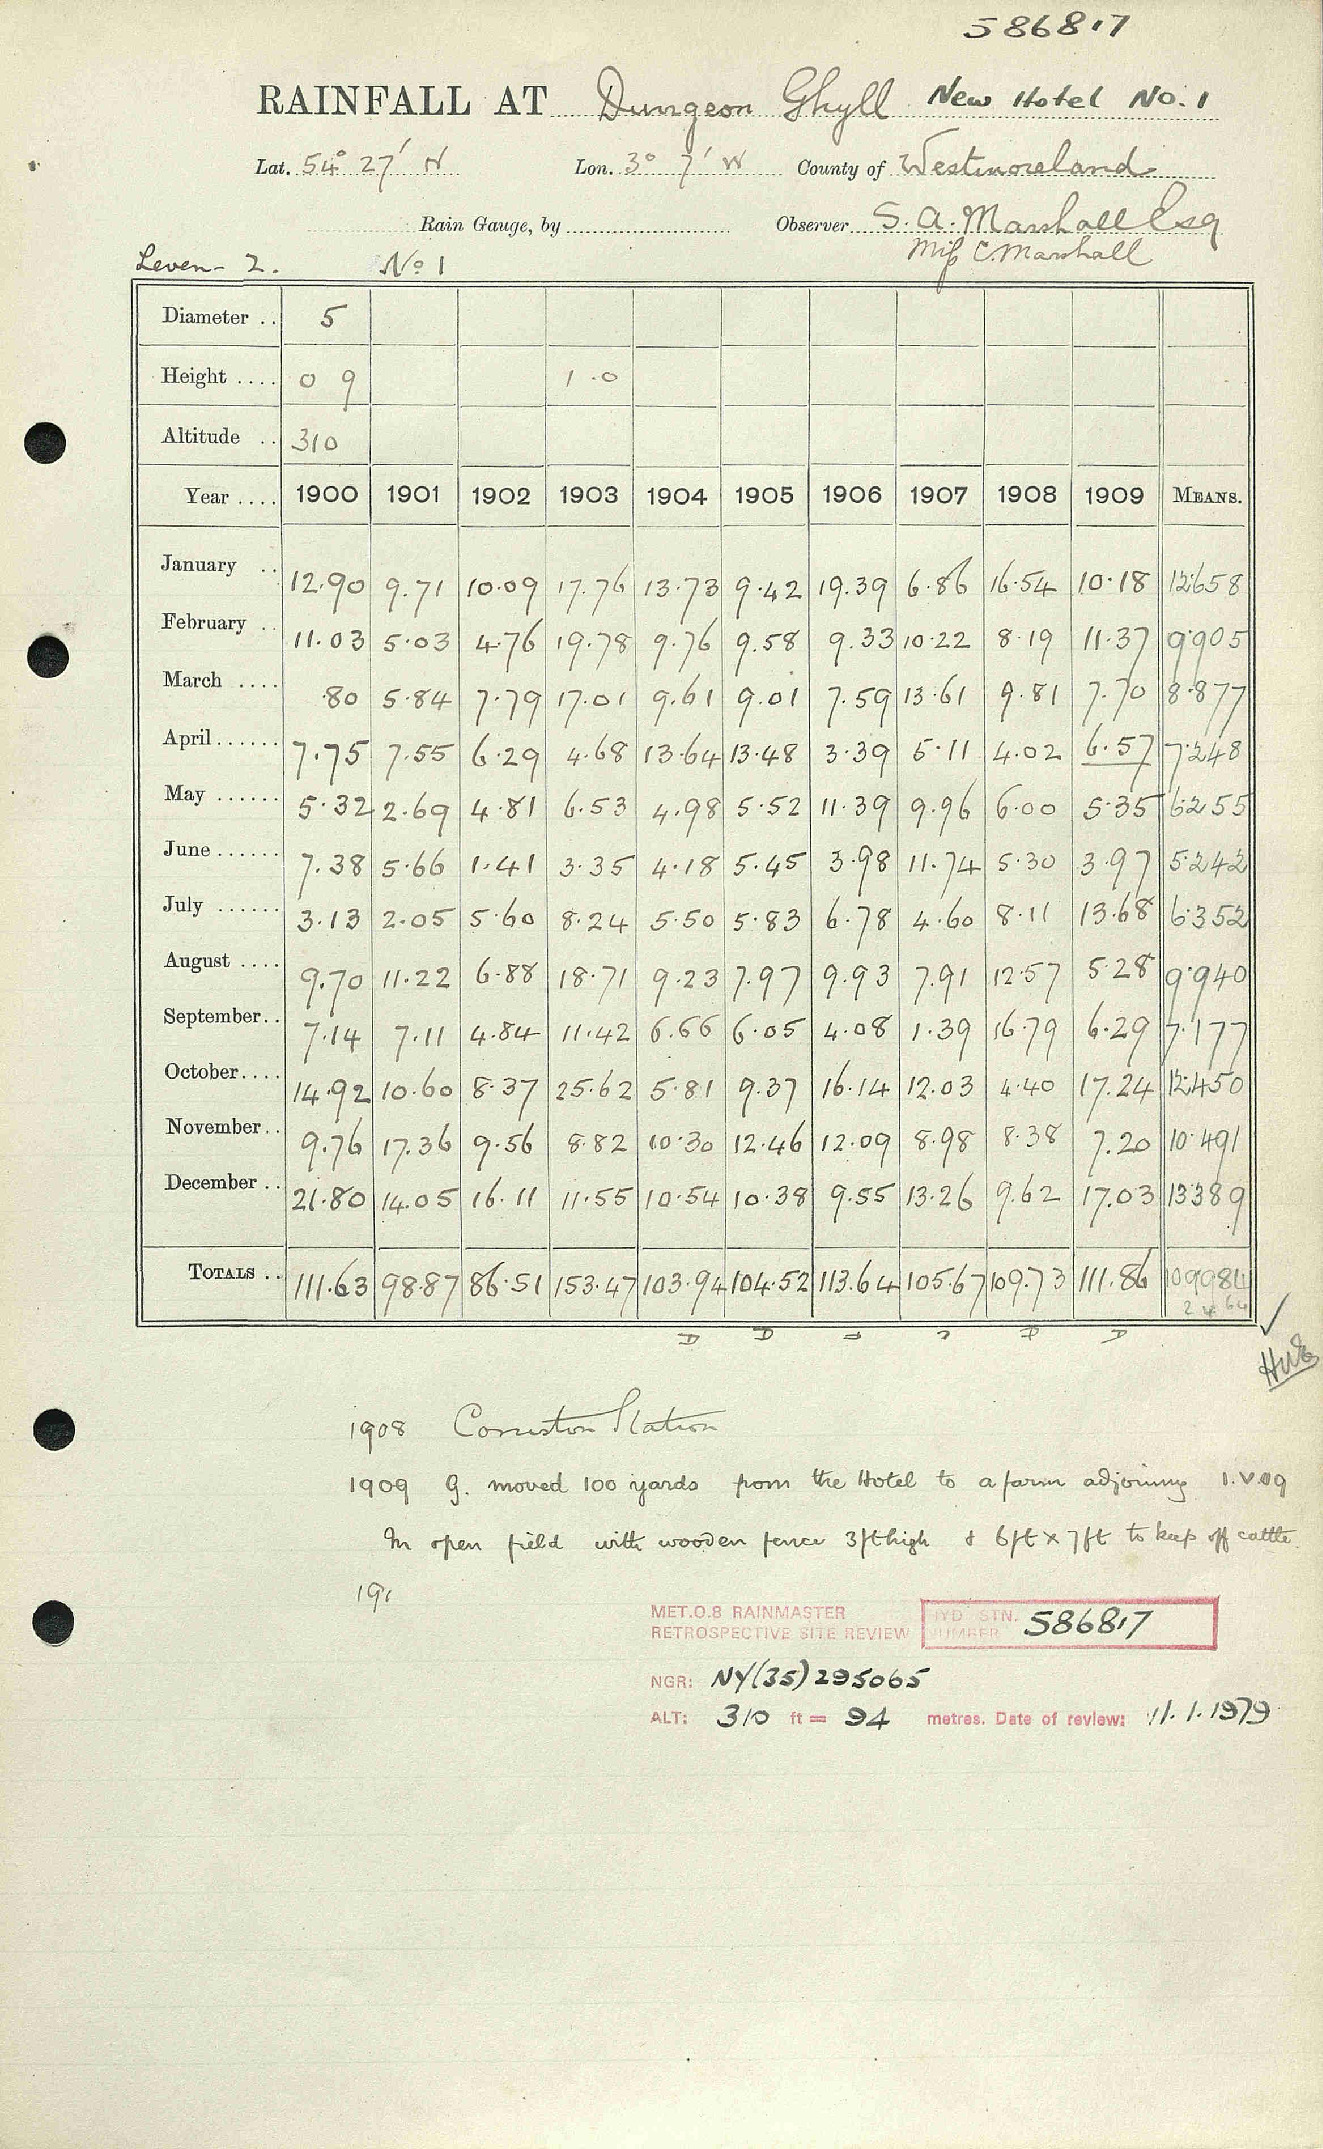 586817
RAINFALL AT Dungeon Ghyll New Hotel No. 1
Lat. 54° 27' N Lon. 3° 7' W County of Westmoreland
Rain Gauge, by Observer S. A. Marshall Esq
Miss C Marshall
Leven - 2. No 1
Diameter .. 5
Height .... 0 9 1.0
Altitude .. 310
Year .... 1900 1901 1902 1903 1904 1905 1906 1907 1908 1909 MEANS.
January .. 12.90 9.71 10.09 17.76 13.73 9.42 19.39 6.86 16.54 10.18 12.658
February .. 11.03 5.03 4.76 19.78 9.76 9.58 9.33 10.22 8.19 11.37 9.905
March .... .80 5.84 7.79 17.01 9.61 9.01 7.59 13.61 9.81 7.70 8.877
April ...... 7.75 7.55 6.29 4.68 13.64 13.48 3.39 5.11 4.02 6.57 7.248
May ...... 5.32 2.69 4.81 6.53 4.98 5.52 11.39 9.96 6.00 5.35 6.255
June ...... 7.38 5.66 1.41 3.35 4.18 5.45 3.98 11.74 5.30 3.97 5.242
July ...... 3.13 2.05 5.60 8.24 5.50 5.83 6.78 4.60 8.11 13.68 6.352
August .... 9.70 11.22 6.88 18.71 9.23 7.97 9.93 7.91 12.57 5.28 9.940
September .. 7.14 7.11 4.84 11.42 6.66 6.05 4.08 1.39 16.79 6.29 7.177
October .... 14.92 10.60 8.37 25.62 5.81 9.37 16.14 12.03 4.40 17.24 12.450
November .. 9.76 17.36 9.56 8.82 10.30 12.46 12.09 8.98 8.38 7.20 10.491
December .. 21.80 14.05 16.11 11.55 10.54 10.38 9.55 13.26 9.62 17.03 13.389
TOTALS .. 111.63 98.87 86.51 153.47 103.94 104.52 113.64 105.67 109.73 111.86 109984
D D D
1908 Coniston Station
1909 G. moved 100 yards from the Hotel to a farm adjoining 1.V.09
In open field with wooden fence 3ft high & 6ft x 7ft to keep off cattle.
191
MET.O.8 RAINMASTER
RETROSPECTIVE SITE REVIEW
HYD STN. NUMBER 586817
NGR: NY(35)295065
ALT: 310 ft = 94 metres. Date of review: 11.1.1979